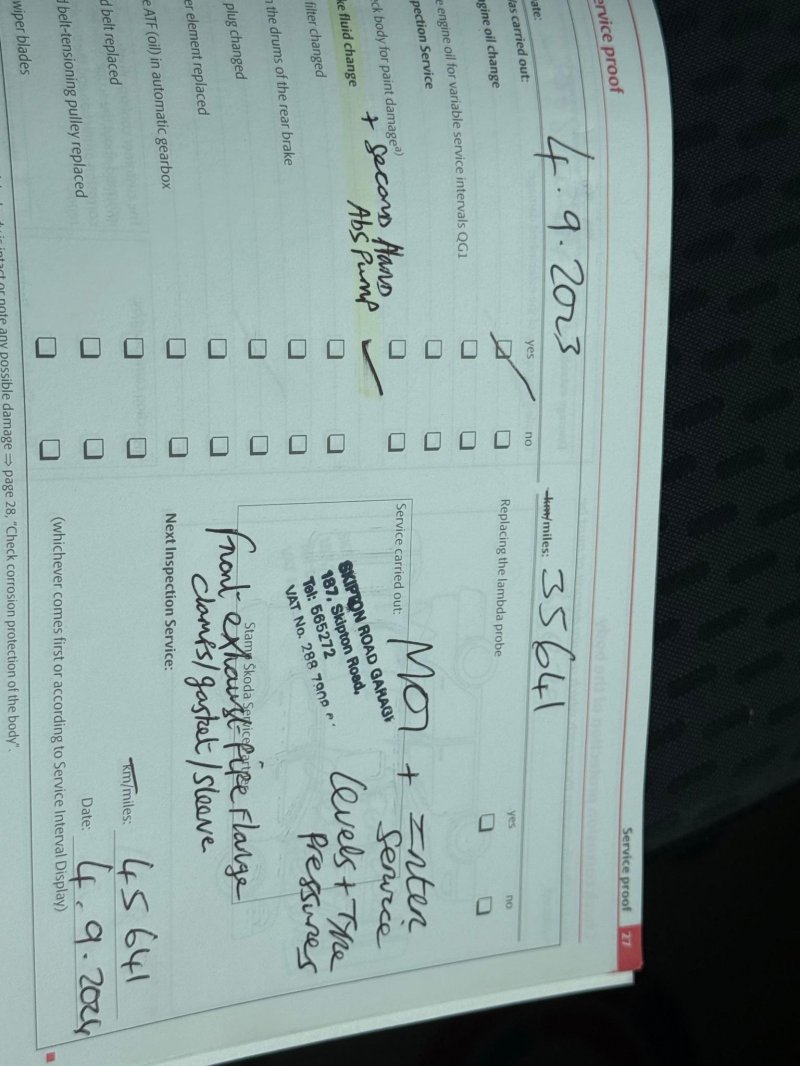 Service proof 27
ervice proof
ate: 4.9.2023
km/miles: 35641
as carried out:
yes
no
ngine oil change
e engine oil for variable service intervals QG1
pection Service
ck body for paint damage a)
+ Second Hand
Abs Pump
ke fluid change
filter changed
n the drums of the rear brake
plug changed
er element replaced
e ATF (oil) in automatic gearbox
d belt replaced
d belt-tensioning pulley replaced
wiper blades
Replacing the lambda probe
yes
no
Service carried out:
MOT + Inter
Service
Levels + Tyre
Pressures
SKIPTON ROAD GARAGE
187, Skipton Road,
Tel: 565272
VAT No. 288
Stamp Škoda Service Partner
Front exhaust Pipe Flange
Clamps/gasket/sleeve
Next Inspection Service:
km/miles: 45641
Date: 4.9.2024
(whichever comes first or according to Service Interval Display)
is intact or note any possible damage ⇒ page 28, "Check corrosion protection of the body".